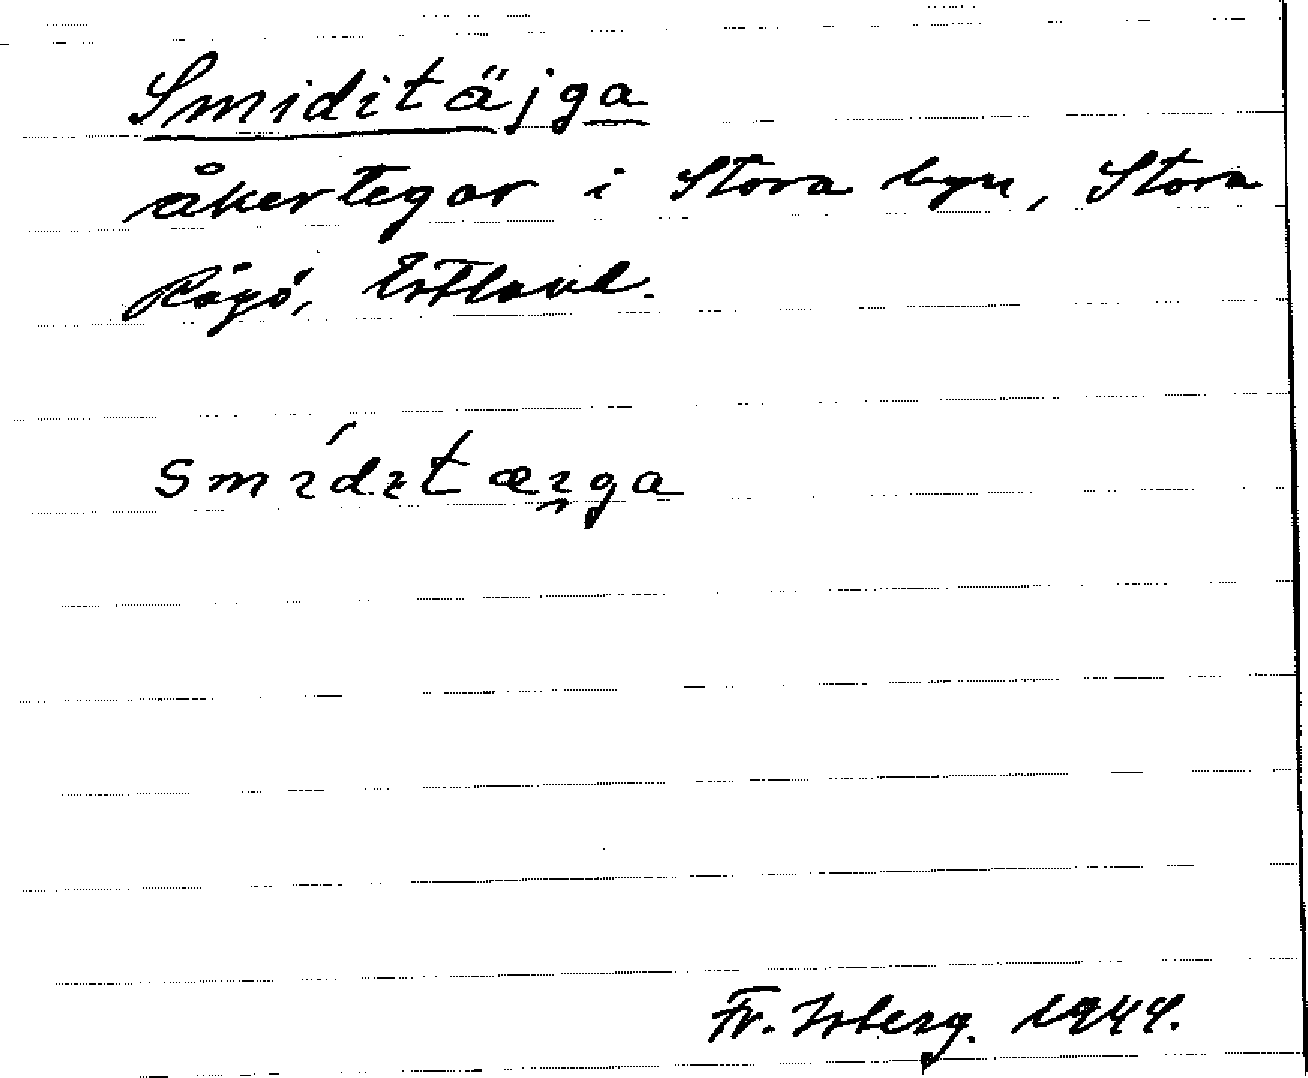 Smiditäjga
åkertegar i Stora byn, Stora
Rågö, Estland.
smídıtæı̯ga
Fr. Isberg. 1944.